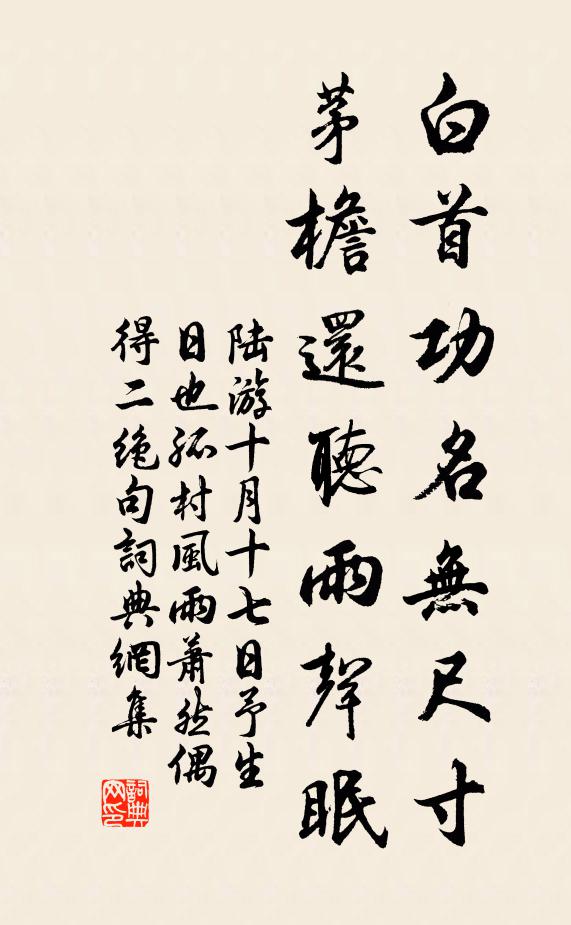 白首功名無尺寸
茅檐還聽雨聲眠
陆游十月十七日予生
日也孤村風雨蕭然偶
得二絶句詞典網集
詞典
网印